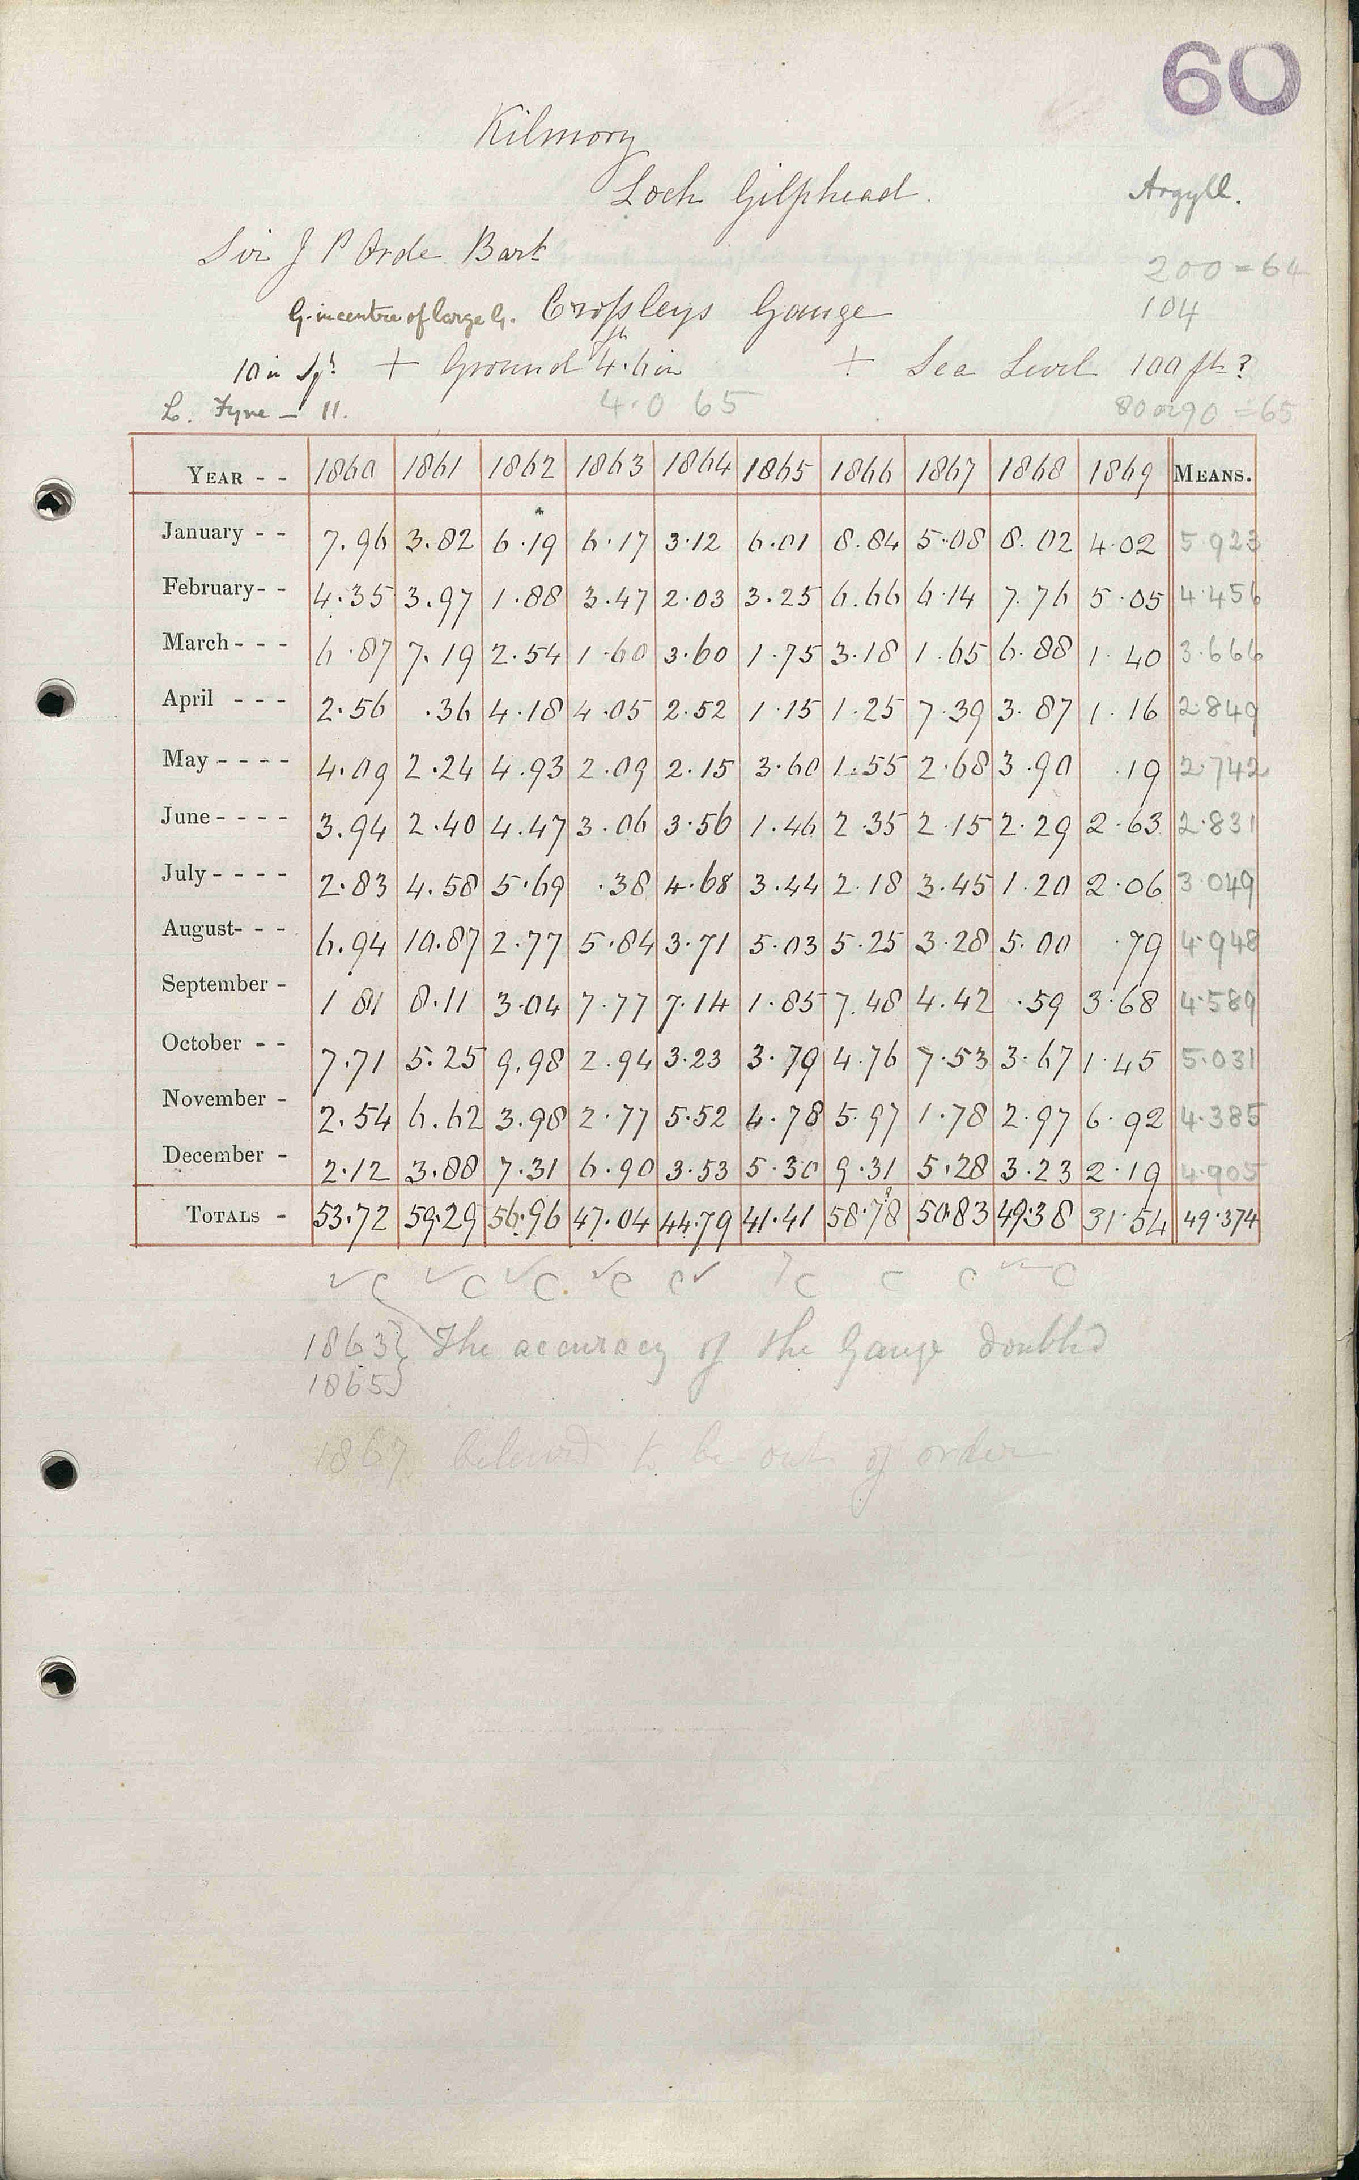 60
Kilmory
Loch Gilphead.
Argyll.
Sir J P Orde Bart
200 = 64
G. in centre of large G. Crossleys Gauge
104
10 in Sqr + Ground 4 ft. 6 in + Sea Level 100 ft?
L. Fyne - 11. 4.0 65 80 or 90 = 65
YEAR - - 1860 1861 1862 1863 1864 1865 1866 1867 1868 1869 MEANS.
January - - 7.96 3.82 6.19 6.17 3.12 6.01 8.84 5.08 8.02 4.02 5.923
February - - 4.35 3.97 1.88 3.47 2.03 3.25 6.66 6.14 7.76 5.05 4.456
March - - - 6.87 7.19 2.54 1.60 3.60 1.75 3.18 1.65 6.88 1.40 3.666
April - - - 2.56 .36 4.18 4.05 2.52 1.15 1.25 7.39 3.87 1.16 2.849
May - - - - 4.09 2.24 4.93 2.09 2.15 3.60 1.55 2.68 3.90 .19 2.742
June - - - - 3.94 2.40 4.47 3.06 3.56 1.46 2.35 2.15 2.29 2.63 2.831
July - - - - 2.83 4.58 5.69 .38 4.68 3.44 2.18 3.45 1.20 2.06 3.049
August - - - 6.94 10.87 2.77 5.84 3.71 5.03 5.25 3.28 5.00 .79 4.948
September - 1 81 8.11 3.04 7.77 7.14 1.85 7.48 4.42 .59 3.68 4.589
October - - 7.71 5.25 9.98 2.94 3.23 3.79 4.76 7.53 3.67 1.45 5.031
November - 2.54 6.62 3.98 2.77 5.52 4.78 5.97 1.78 2.97 6.92 4.385
December - 2.12 3.88 7.31 6.90 3.53 5.30 9.31 5.28 3.23 2.19 4.905
TOTALS - 53.72 59.29 56.96 47.04 44.79 41.41 58.78 50.83 49.38 31.54 49.374
✓ C ✓ C ✓ C ✓ C C ✓ C C C C
1863 } The accuracy of the Gauge doubted
1865 }
1867 believed to be out of order